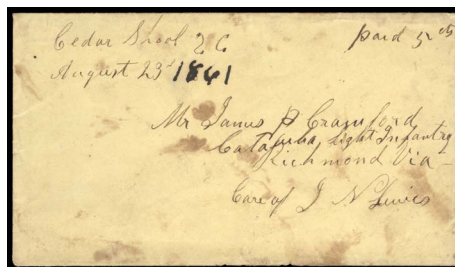 Cedar Shoal S C
paid 5 cts
August 23d 1861
Mr James P Crawford
Catawba Light Infantry
Richmond Via
Care of J N Lewis